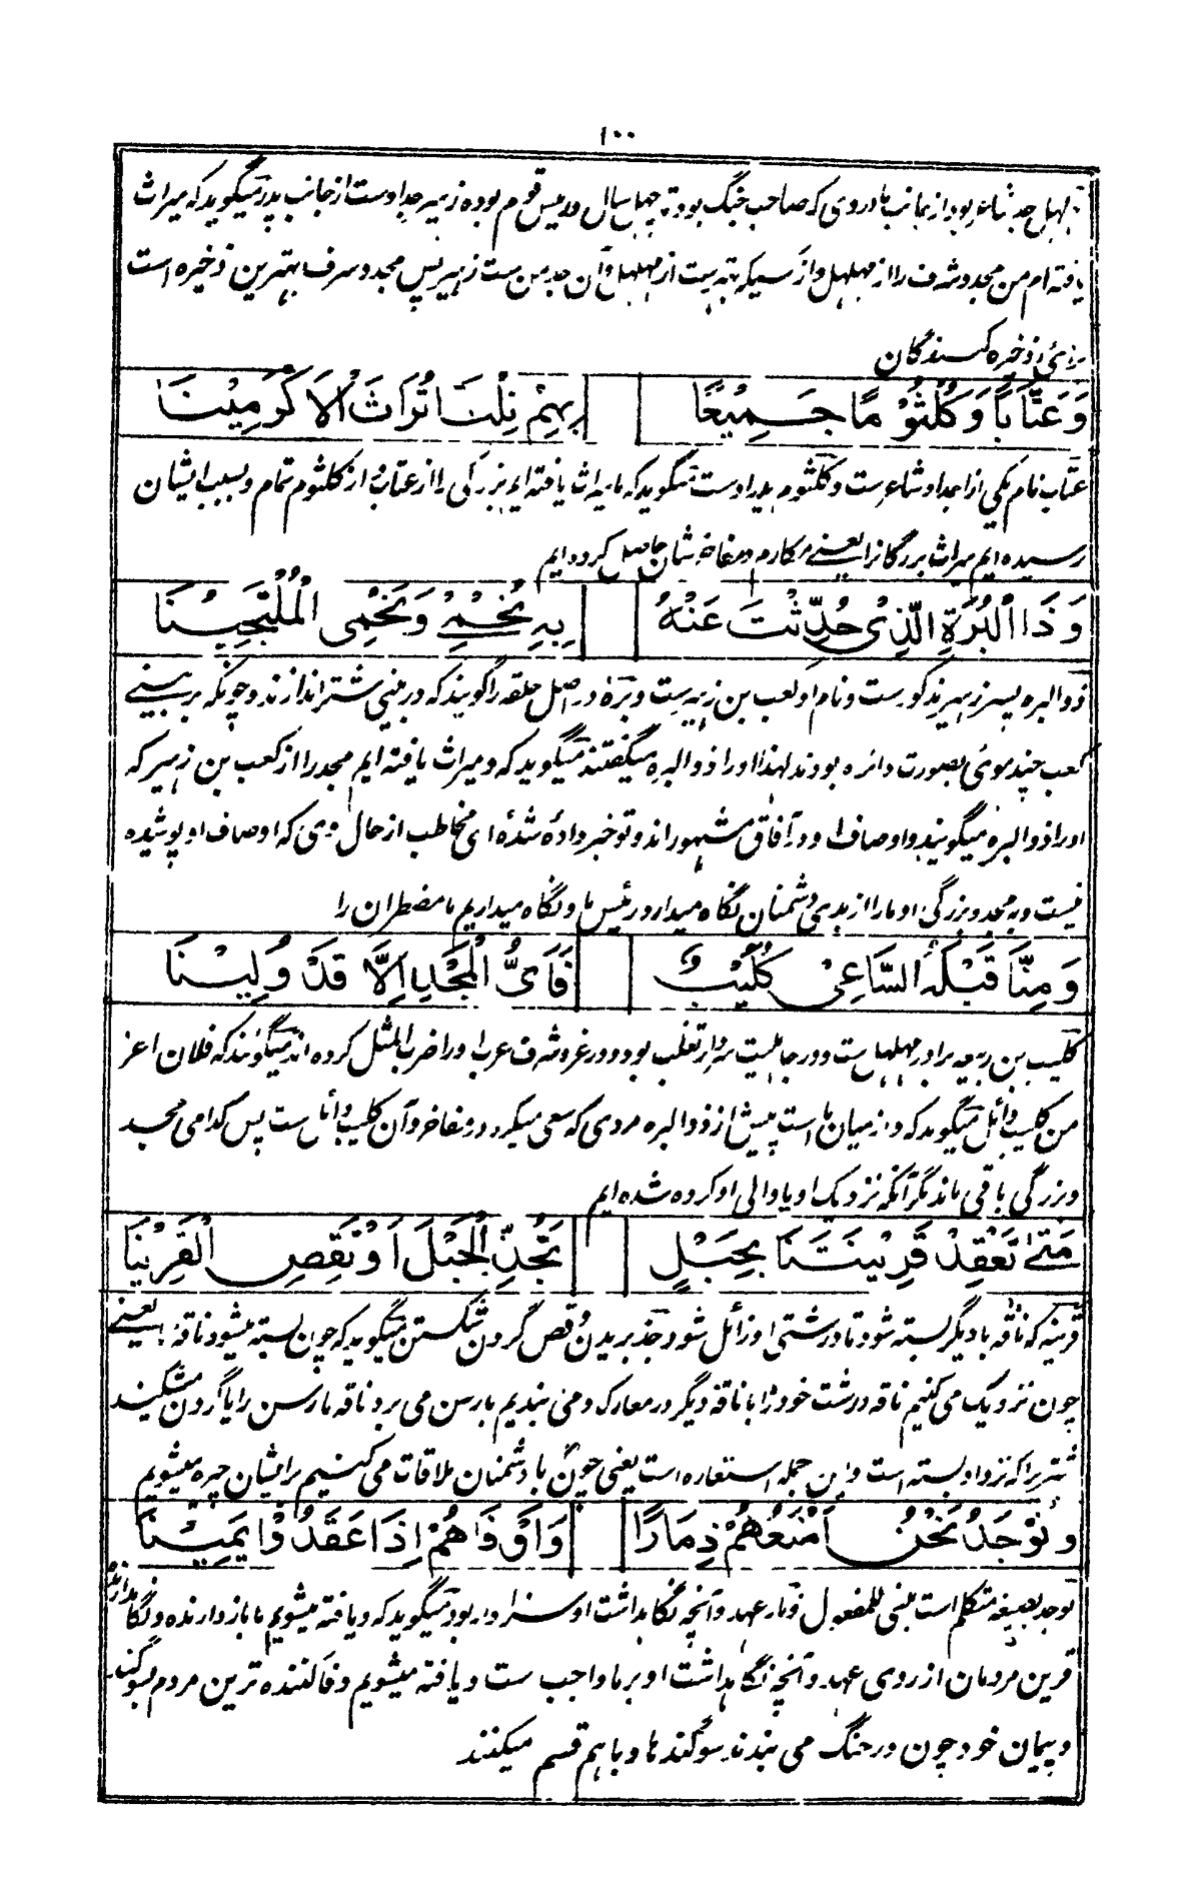 ۱۰۰
مهلهل جد شاعر بود از جانب مادر وی که صاحب جنگ بود تا چهل سال و رئیس قوم بوده زهیر جد اوست از جانب پدر میگوید که میراث
یافته ام من مجد و شرف را از مهلهل و از کسیکه بهتر ست از مهلهل و آن جد من ست زهیر پس مجد و شرف بهترین ذخیره است
برای ذخیره کنندگان
وَعَتَّابًا وَكُلْثُوْمًا جَمِيْعًا بِهِمْ نِلْنَا تُرَاثَ الْاَكْرَمِيْنَا
عتاب نام یکی از اجداد شاعرست و کلثوم پدر اوست میگوید که ما میراث یافته ایم بزرگی را از عتاب و از کلثوم تمام و بسبب ایشان
رسیده ایم میراث بزرگانرا یعنے مکارم و مفاخر شان حاصل کرده ایم
وَذَا الْبُرَةِ الَّذِىْ حُدِّثْتَ عَنْهُ بِهِ نُحْمٰى وَنَحْمِى الْمُلْتَجِيْنَا
ذو البره پسر زهیر مذکور ست و نام او کعب بن زهیر ست و بره در اصل حلقه را گویند که در بینی شتر اندازند و چونکه بر بینے
کعب چند موی بصورت دائره بودند لهذا او را ذو البره میگفتند میگوید که و میراث یافته ایم مجد را از کعب بن زهیر که
او را ذو البره میگویند و اوصاف او در آفاق مشهور اند و تو خبر داده شدهٔ ای مخاطب از حال وی که اوصاف او پوشیده
نیست و به مجد و بزرگی او ما را از بدی دشمنان نگاه میدارد رئیس ما و نگاه میداریم ما مضطران را
وَمِنَّا قَبْلَهُ السَّاعِىْ كُلَيْبٌ فَاَىُّ الْمَجْدِ اِلَّا قَدْ وَلِيْنَا
کلیب بن ربیعه برادر مهلهل ست و در جاهلیت سردار تغلب بود و در عز و شرف عرب او را ضرب المثل کرده اند میگویند که فلان اعز
من کلیب وائل میگوید که و از میان ما است پیش از ذو البره مردی که سعی میکرد در مفاخر و آن کلیب وائل ست پس کدامی مجد
و بزرگی باقی ماند مگر آنکه نزدیک او یا والی او کرده شده ایم
مَتٰى نَعْقِدْ قَرِيْنَتَنَا بِحَبْلٍ تَجُذِّ الْحَبْلَ اَوْ تَقِصِ الْقَرِيْنَا
قرینه که ناقه با دیگر بسته شود تا درشتی او زائل شود جذ بریدن وقص گردن شکستن میگوید که چون بسته میشود ناقهٔ ما یعنے
چون نزدیک می کنیم ناقه درشت خود را با ناقه دیگر در معارک و می بندیم با رسن می برد ناقه ما رسن را یا گردن میشکند
شتریرا که نزد او بسته است و این جمله استعاره است یعنی چون با دشمنان ملاقات می کنیم بر ایشان چیره میشویم
وَنُوْجَدُ نَحْنُ اَمْنَعَهُمْ ذِمَارًا وَاَوْفَاهُمْ اِذَا عَقَدُوْا يَمِيْنَا
نوجد بصیغه متکلم است مبنی للمفعول ذمار عهد و آنچه نگاهداشت او سزاوار بود میگوید که و یافته میشویم ما باز دارنده و نگاهدارنده
ترین مردمان از روی عهد و آنچه نگاهداشت او بر ما واجب ست و یافته میشویم وفا کننده ترین مردم سوگند
و پیمان خود چون در جنگ می بندند سوگند ها و باهم قسم میکنند